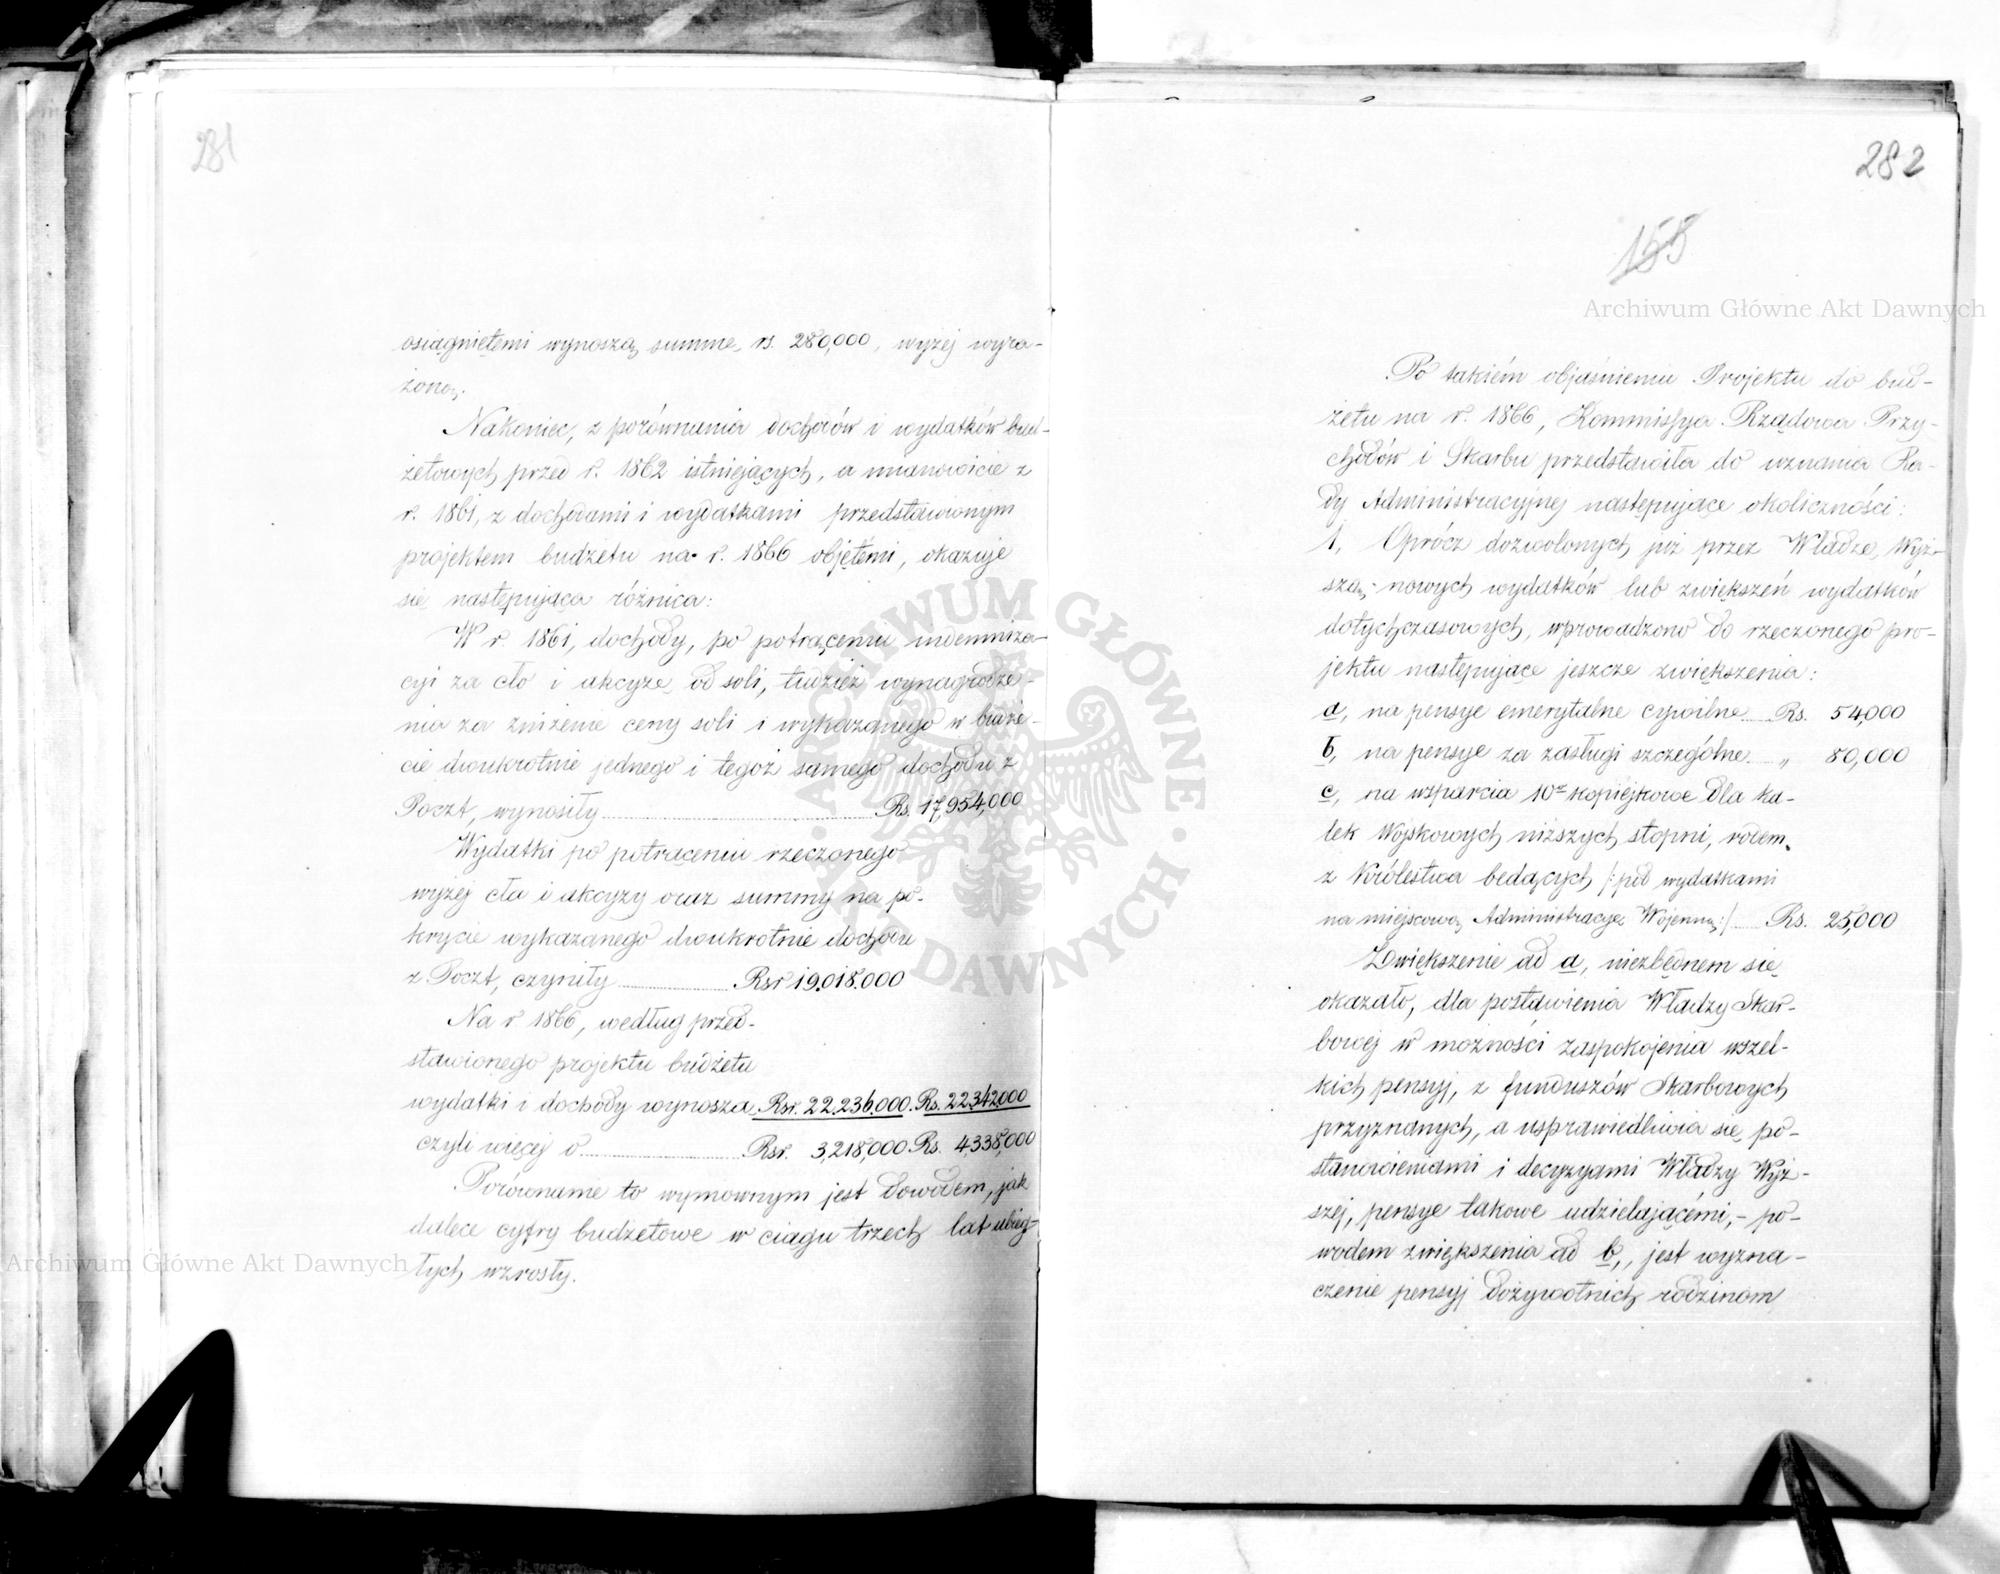 281
osiągniętemi wynoszą summę rs. 280,000, wyżej wyra-
żoną.
Nakoniec, z porównania dochodów i wydatków bud-
żetowych przed r. 1862 istniejących, a mianowicie z
r. 1861, z dochodami i wydatkami przedstawionym
projektem budżetu na r. 1866 objętemi, okazuje
się następująca różnica:
W r. 1861, dochody, po potrąceniu indemniza-
cyi za cło i akcyzę od soli, tudzież wynagrodze-
nia za zniżenie ceny soli i wykazanego w budże-
cie dwukrotnie jednego i tegoż samego dochodu z
Poczt, wynosiły Rs. 17,954,000
Wydatki po potrąceniu rzeczonego
wyżej cła i akcyzy oraz summy na po-
krycie wykazanego dwukrotnie dochodu
z Poczt, czyniły Rsr 19.018.000
Na r 1866, według przed-
stawionego projektu budżetu
wydatki i dochody wynoszą Rsr. 22.236.000. Rs. 22.342.000
czyli więcej o Rsr. 3,218,000 Rs. 4,338,000
Porównanie to wymownym jest dowodem, jak
dalece cyfry budżetowe w ciągu trzech lat ubieg-
łych wzrosły.
282
155
Po takiém objaśnieniu Projektu do bud-
żetu na r. 1866, Kommissya Rządowa Przy-
chodów i Skarbu przedstawiła do uznania Ra-
dy Administracyjnej następujące okoliczności:
1, Oprócz dozwolonych już przez Władzę Wyż-
szą nowych wydatków lub zwiększeń wydatków
dotychczasowych, wprowadzono do rzeczonego pro-
jektu następujące jeszcze zwiększenia:
a, na pensye emerytalne cywilne Rs. 54,000
b, na pensye za zasługi szczególne „ 80,000
c, na wsparcia 10z kopiejkowe dla ka-
lek Wojskowych niższych stopni, rodem
z Królestwa będących /:pod wydatkami
na miejscową Administracyę Wojenną:/ Rs. 25,000
Zwiększenie ad a, niezbędnem się
okazało, dla postawienia Władzy Skar-
bowej w możności zaspokojenia wszel-
kich pensyj, z funduszów Skarbowych
przyznanych, a usprawiedliwia się po-
stanowieniami i decyzyami Władzy Wyż-
szej, pensye takowe udzielającémi, - po-
wodem zwiększenia ad b, jest wyzna-
czenie pensyj dożywotnich rodzinom
Archiwum Główne Akt Dawnych
Archiwum Główne Akt Dawnych
ARCHIWUM GŁÓWNE AKT DAWNYCH